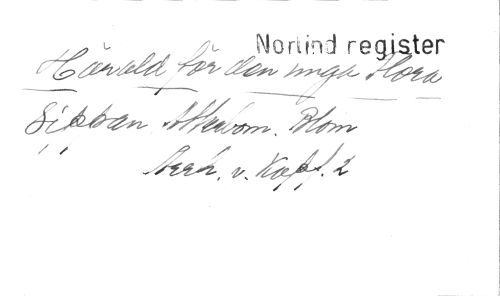 Norlind register
Härald för den unga Flora
Sippan Atterbom. Blom
Arrh. v. Kapf. 2